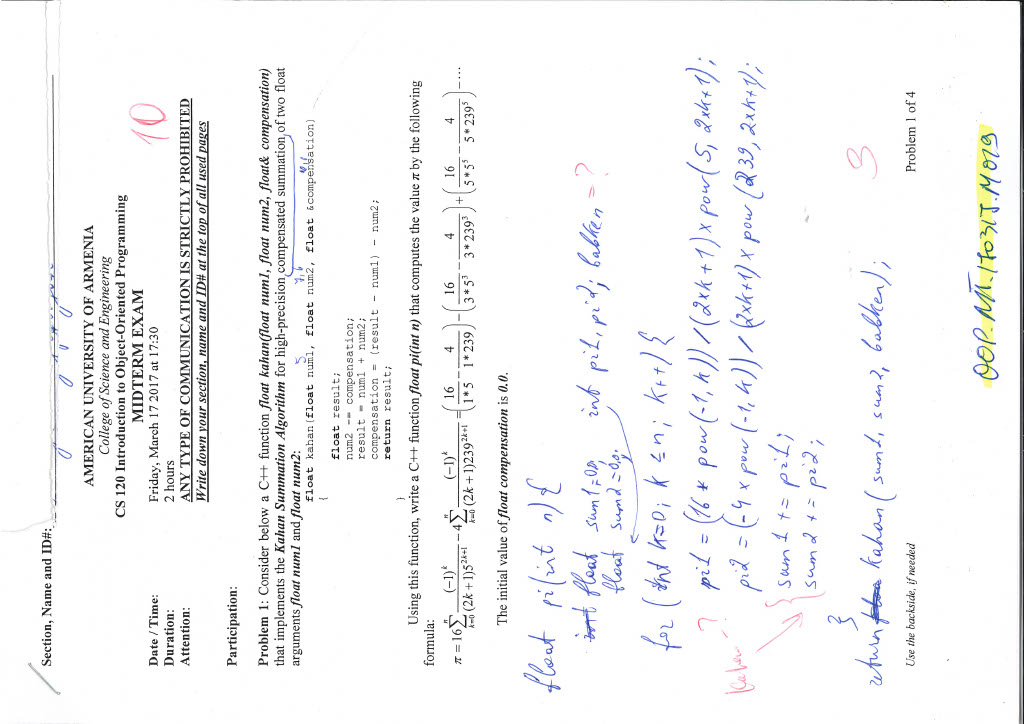 Section, Name and ID#:
AMERICAN UNIVERSITY OF ARMENIA
College of Science and Engineering
CS 120 Introduction to Object-Oriented Programming
MIDTERM EXAM
10
Date / Time: Friday, March 17 2017 at 17:30
Duration: 2 hours
Attention: ANY TYPE OF COMMUNICATION IS STRICTLY PROHIBITED
Write down your section, name and ID# at the top of all used pages
Participation:
Problem 1: Consider below a C++ function float kahan(float num1, float num2, float& compensation)
that implements the Kahan Summation Algorithm for high-precision compensated summation of two float
arguments float num1 and float num2:
5
float kahan(float num1, float num2, float &compensation)
{
float result;
num2 -= compensation;
result = num1 + num2;
compensation = (result - num1) - num2;
return result;
}
Using this function, write a C++ function float pi(int n) that computes the value π by the following
formula:
π = 16 ∑_{k=0}^{n} (-1)^k / ((2k+1)5^{2k+1}) − 4 ∑_{k=0}^{n} (-1)^k / ((2k+1)239^{2k+1}) = (16/(1*5) − 4/(1*239)) − (16/(3*5^3) − 4/(3*239^3)) + (16/(5*5^5) − 4/(5*239^5)) − ⋯
The initial value of float compensation is 0.0.
float pi(int n) {
float sum1=0.0; int pi1, pi2; babken = ?
float sum2=0.0;
for (int k=0; k ≤ n; k++) {
? pi1 = (16 * pow(-1, k)) / (2xk+1) x pow(5, 2xk+1);
pi2 = (-4 x pow(-1, k)) / (2xk+1) x pow(239, 2xk+1);
sum1 += pi1;
sum2 += pi2;
}
return kahan(sum1, sum2, babken);
3
Use the backside, if needed Problem 1 of 4
OOP.MT.170317.M019